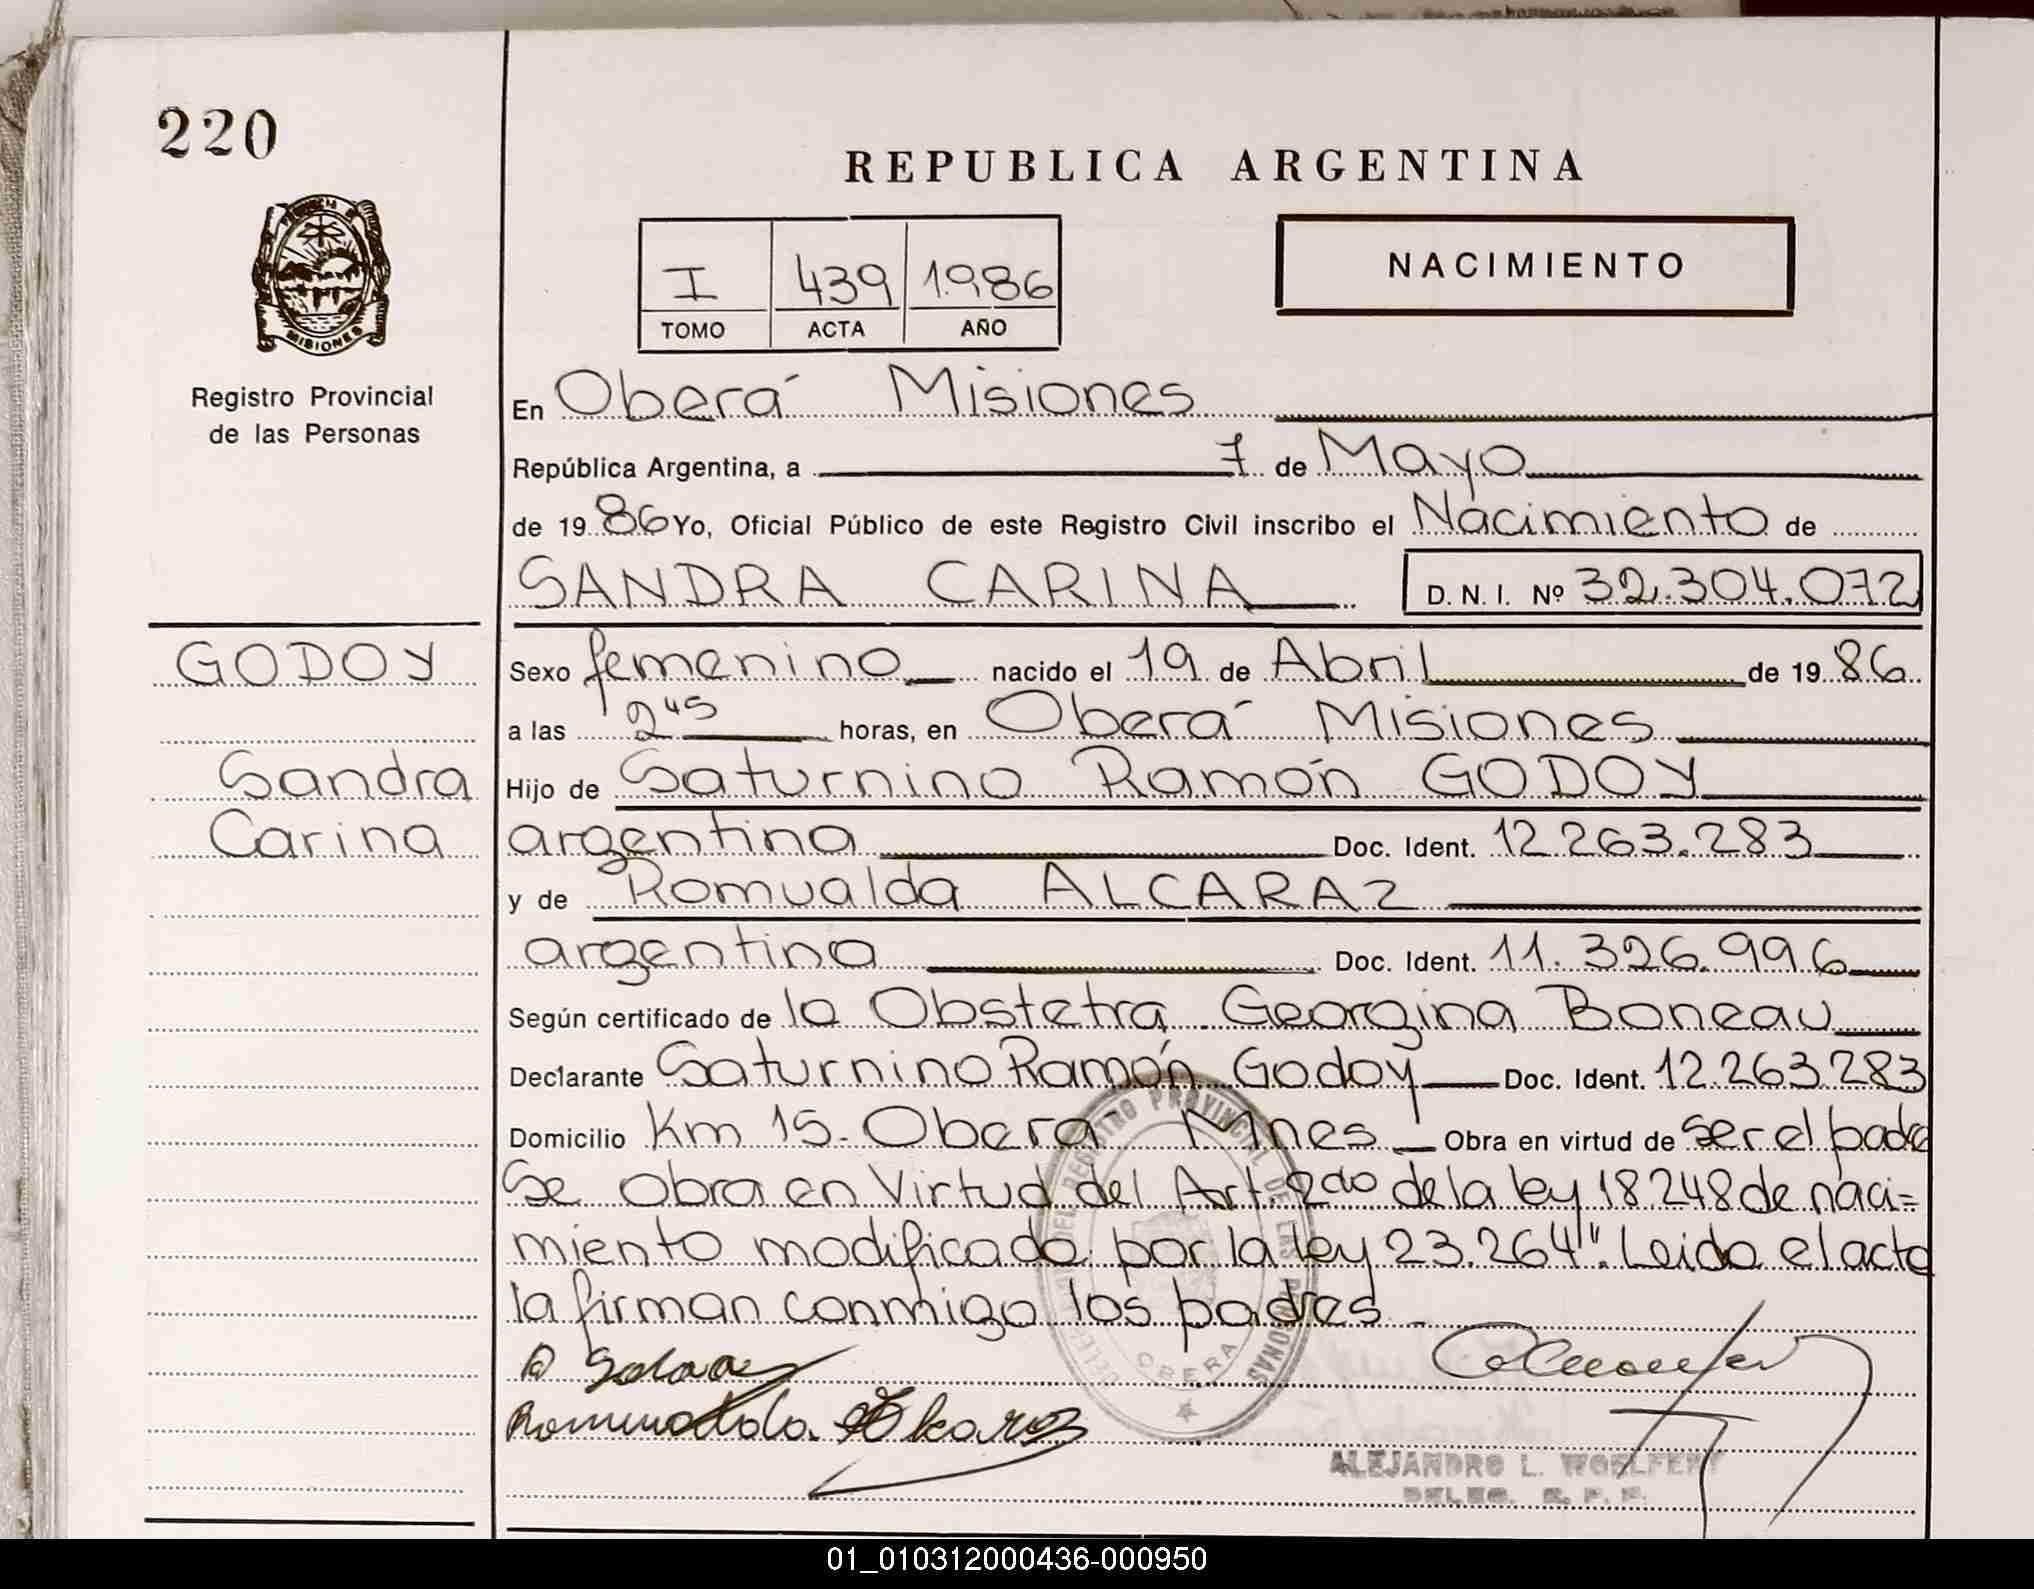 220
REPUBLICA ARGENTINA
I 439 1986
TOMO ACTA AÑO
NACIMIENTO
PROVINCIA DE
MISIONES
Registro Provincial
de las Personas
En Oberá Misiones
República Argentina, a 7 de Mayo
de 1986 Yo, Oficial Público de este Registro Civil inscribo el Nacimiento de
SANDRA CARINA D. N. I. Nº 32.304.072
GODOY
Sandra
Carina
Sexo femenino nacido el 19 de Abril de 1986
a las 2 45 horas, en Oberá Misiones
Hijo de Saturnino Ramón GODOY
argentina Doc. Ident. 12.263.283
y de Romualda ALCARAZ
argentina Doc. Ident. 11.326.996
Según certificado de la Obstetra Georgina Boneau
Declarante Saturnino Ramón Godoy Doc. Ident. 12.263.283
Domicilio Km 15. Obera Mnes Obra en virtud de ser el padre
Se obra en Virtud del Art. 2do de la ley 18248 de naci=
miento modificado por la ley 23.264". Leida el acta
la firman conmigo los padres
DELEGACION DEL REGISTRO PROVINCIAL DE LAS PERSONAS
OBERA
ALEJANDRO L.
DELEG. R. P. P.
01_010312000436-000950